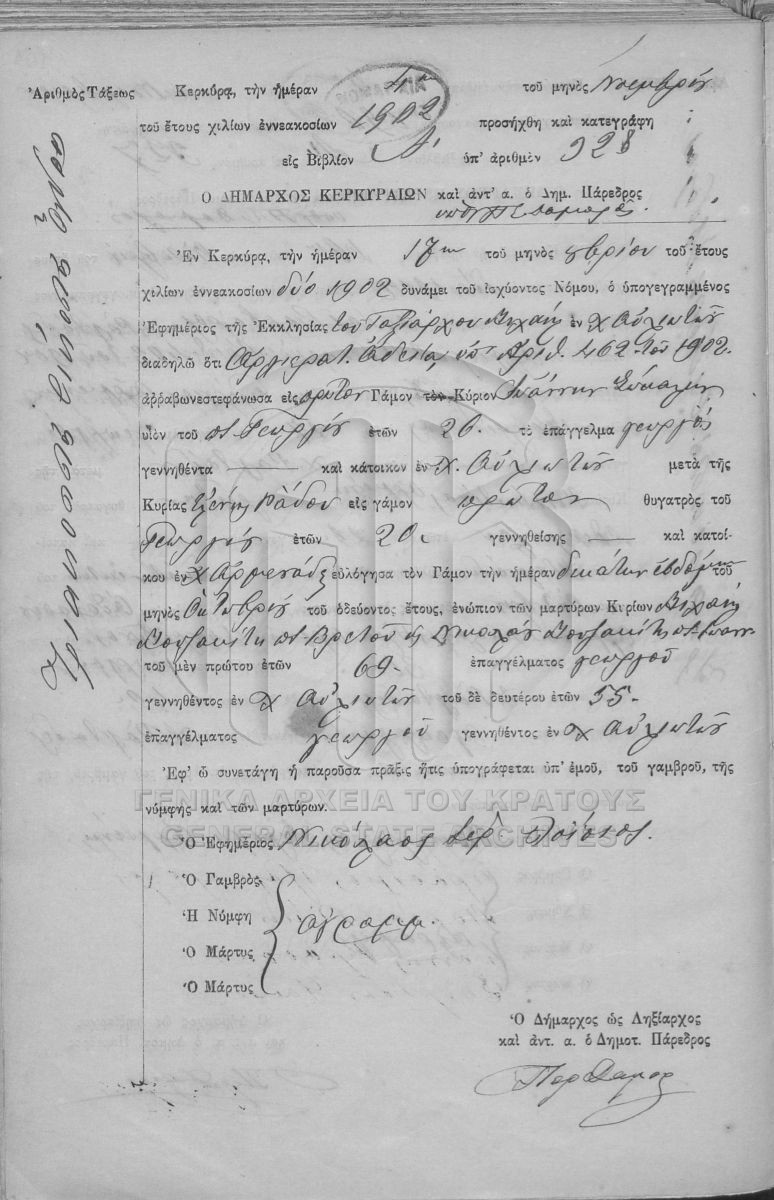 Ἀριθμὸς Τάξεως
Τριακόσια εἴκοσι ὀκτώ
Κερκύρᾳ, τὴν ἡμέραν τοῦ μηνὸς Νοεμβρίου
τοῦ ἔτους χιλίων ἐννεακοσίων 1902 προσήχθη καὶ κατεγράφη
εἰς Βιβλίον Α' ὑπ' ἀριθμὸν 328
Ο ΔΗΜΑΡΧΟΣ ΚΕΡΚΥΡΑΙΩΝ καὶ ἀντ' α. ὁ Δημ. Πάρεδρος
Ἐν Κερκύρᾳ, τὴν ἡμέραν 17ην τοῦ μηνὸς 8βρίου τοῦ ἔτους
χιλίων ἐννεακοσίων δύο 1902 δυνάμει τοῦ ἰσχύοντος Νόμου, ὁ ὑπογεγραμμένος
Ἐφημέριος τῆς Ἐκκλησίας του Ταξιάρχου Μιχαὴλ ἐν χ Αὐλιωτῶν
διαδηλῶ ὅτι Ἀρχιερατ. Ἀδείᾳ ὑπ' Ἀριθ. 462 τοῦ 1902.
ἀρραβωνεστεφάνωσα εἰς πρῶτον Γάμον τὸν Κύριον Ἰωάννην
υἱὸν τοῦ π. Γεωργίου ἐτῶν 26. τὸ ἐπάγγελμα γεωργός
γεννηθέντα — καὶ κάτοικον ἐν χ. Αὐλιωτῶν μετὰ τῆς
Κυρίας Ἑλένης Ράδου εἰς γάμον πρῶτον θυγατρὸς τοῦ
Γεωργίου ἐτῶν 20. γεννηθείσης — καὶ κατοί-
κου ἐν χ Ἀρμενάδες εὐλόγησα τὸν Γάμον τὴν ἡμέραν δεκάτην ἑβδόμην τοῦ
μηνὸς Ὀκτωβρίου τοῦ ὁδεύοντος ἔτους, ἐνώπιον τῶν μαρτύρων Κυρίων Μιχαὴλ
Μουζακίτη π. Βρετοῦ κ Νικολάου Μουζακίτη π. Ἰωάνν
τοῦ μὲν πρώτου ἐτῶν 69. ἐπαγγέλματος γεωργοῦ
γεννηθέντος ἐν χ Αὐλιωτῶν τοῦ δὲ δευτέρου ἐτῶν 55.
ἐπαγγέλματος γεωργοῦ γεννηθέντος ἐν χ Αὐλιωτῶν
Ἐφ' ᾧ συνετάγη ἡ παροῦσα πρᾶξις ἥτις ὑπογράφεται ὑπ' ἐμοῦ, τοῦ γαμβροῦ, τῆς
νύμφης καὶ τῶν μαρτύρων.
ΓΕΝΙΚΑ ΑΡΧΕΙΑ ΤΟΥ ΚΡΑΤΟΥΣ
GENERAL STATE ARCHIVES
Ὁ Ἐφημέριος Νικόλαος Ἱερ.
Ὁ Γαμβρὸς
Ἡ Νύμφη ἀγράμμ.
Ὁ Μάρτυς
Ὁ Μάρτυς
Ὁ Δήμαρχος ὡς Ληξίαρχος
καὶ ἀντ. α. ὁ Δημοτ. Πάρεδρος